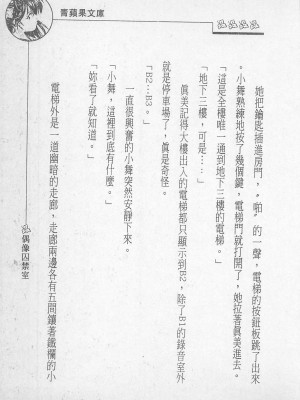 青蘋果文庫
她把鑰匙插進房門，“啪”的一聲，電梯的按鈕板跳了出來
。小舞熟練地按了幾個鍵，電梯門就打開了，她拉著真美進去。
「這是全樓唯一通到地下三樓的電梯。」
「地下三樓，可是……」
真美記得大樓出入的電梯都只顯示到B2，除了B1的錄音室外
就是停車場了，真是奇怪。
「B2…B3。」
一直很興奮的小舞突然安靜下來。
「小舞，這裡到底有什麼。」
「妳看了就知道。」
電梯外是一道幽暗的走廊，走廊兩邊各有五間鑲著鐵欄的小
偶像囚禁室